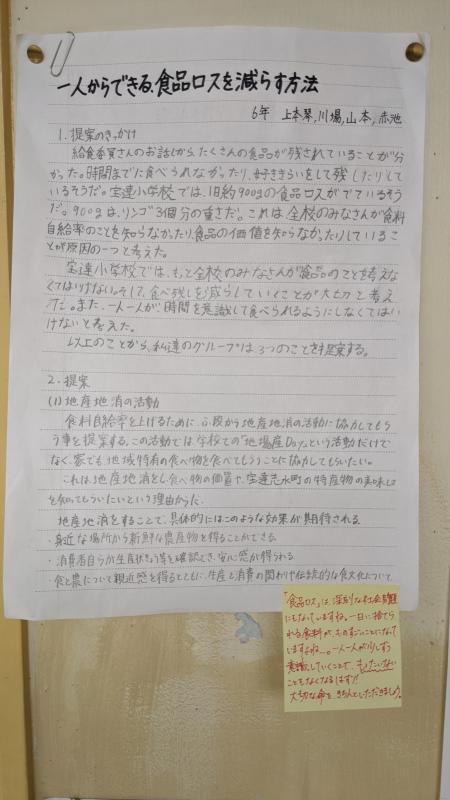 一人からできる、食品ロスを減らす方法
6年 上本琴,川場,山本,赤池
1.提案のきっかけ
給食委員さんのお話しから、たくさんの食品が残されていることが分
かった。時間までに食べられなかったり、好ききらいをして残したりして
いるそうだ。宝達小学校では、1日約900gの食品ロスがでているそう
だ。900gは、リンゴ3個分の重さだ。これは、全校のみなさんが食料
自給率のことを知らなかったり、食品の価値を知らなかったりしているこ
とが原因の一つと考えた。
宝達小学校では、もっと全校のみなさんが食品のことを考えな
くてはいけない。そして、食べ残しを減らしていくことが大切と考え
た。また、一人一人が時間を意識して食べられるようにしなくてはい
けないと考えた。
以上のことから、私達のグループは3つのことを提案する。
2.提案
(1)地産地消の活動
食料自給率を上げるために、ふ段から地産地消の活動に協力してもら
う事を提案する。この活動では学校での「地場産Day」という活動だけで
なく、家でも、地域特有の食べ物を食べてもらうことに協力してもらいたい。
これは、地産地消をし、食べ物の価値や、宝達志水町の特産物の美味しさ
を知ってもらいたいという理由からだ。
地産地消をすることで、具体的にはこのような効果が期待される。
・身近な場所から新鮮な農産物を得ることができる。
・消費者自らが生産状きょう等を確認でき、安心感が得られる。
・食と農について親近感を得るとともに、生産と消費の関わりや伝統的な食文化について
「食品ロス」は、深刻な社会問題
にもなっていますね。一日に捨てら
れる食料が、ものすごいことになって
いますよね…。一人一人が少しずつ
意識していくことで、もったいない
こともなくなるはず!
大切な命を、きちんといただきましょう。